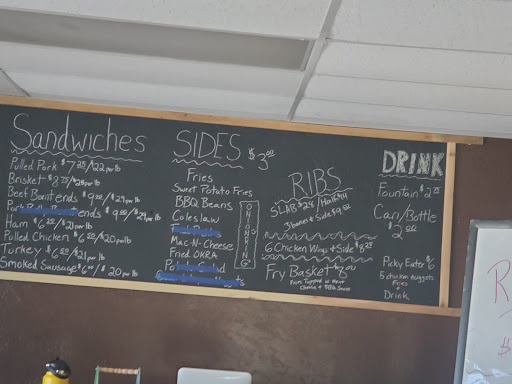 Sandwiches
Pulled Pork $7.25/$22 per lb
Brisket $8.75/$28 per lb
Beef Burnt ends $9.00/$29 per lb
ends $9.00/$29 per lb
Ham $6.50/$21 per lb
Pulled Chicken $6.50/$20 per lb
Turkey $6.50/$21 per lb
Smoked Sausage $6.00/$20 per lb
SIDES $3.00
Fries
Sweet Potato Fries
BBQ Beans
Coleslaw
Mac-N-Cheese
Fried OKRA
ONION RING
RIBS
SLAB $24/Half $14
3 bones + Side $9.00
6 Chicken Wings + Side $8.25
Fry Basket $8.00
Fries Topped w/ Meat
Cheese + BBQ Sauce
DRINK
Fountain $2.75
Can/Bottle
$2.00
Picky Eater $6
5 chicken nuggets
Fries
+
Drink
R
$